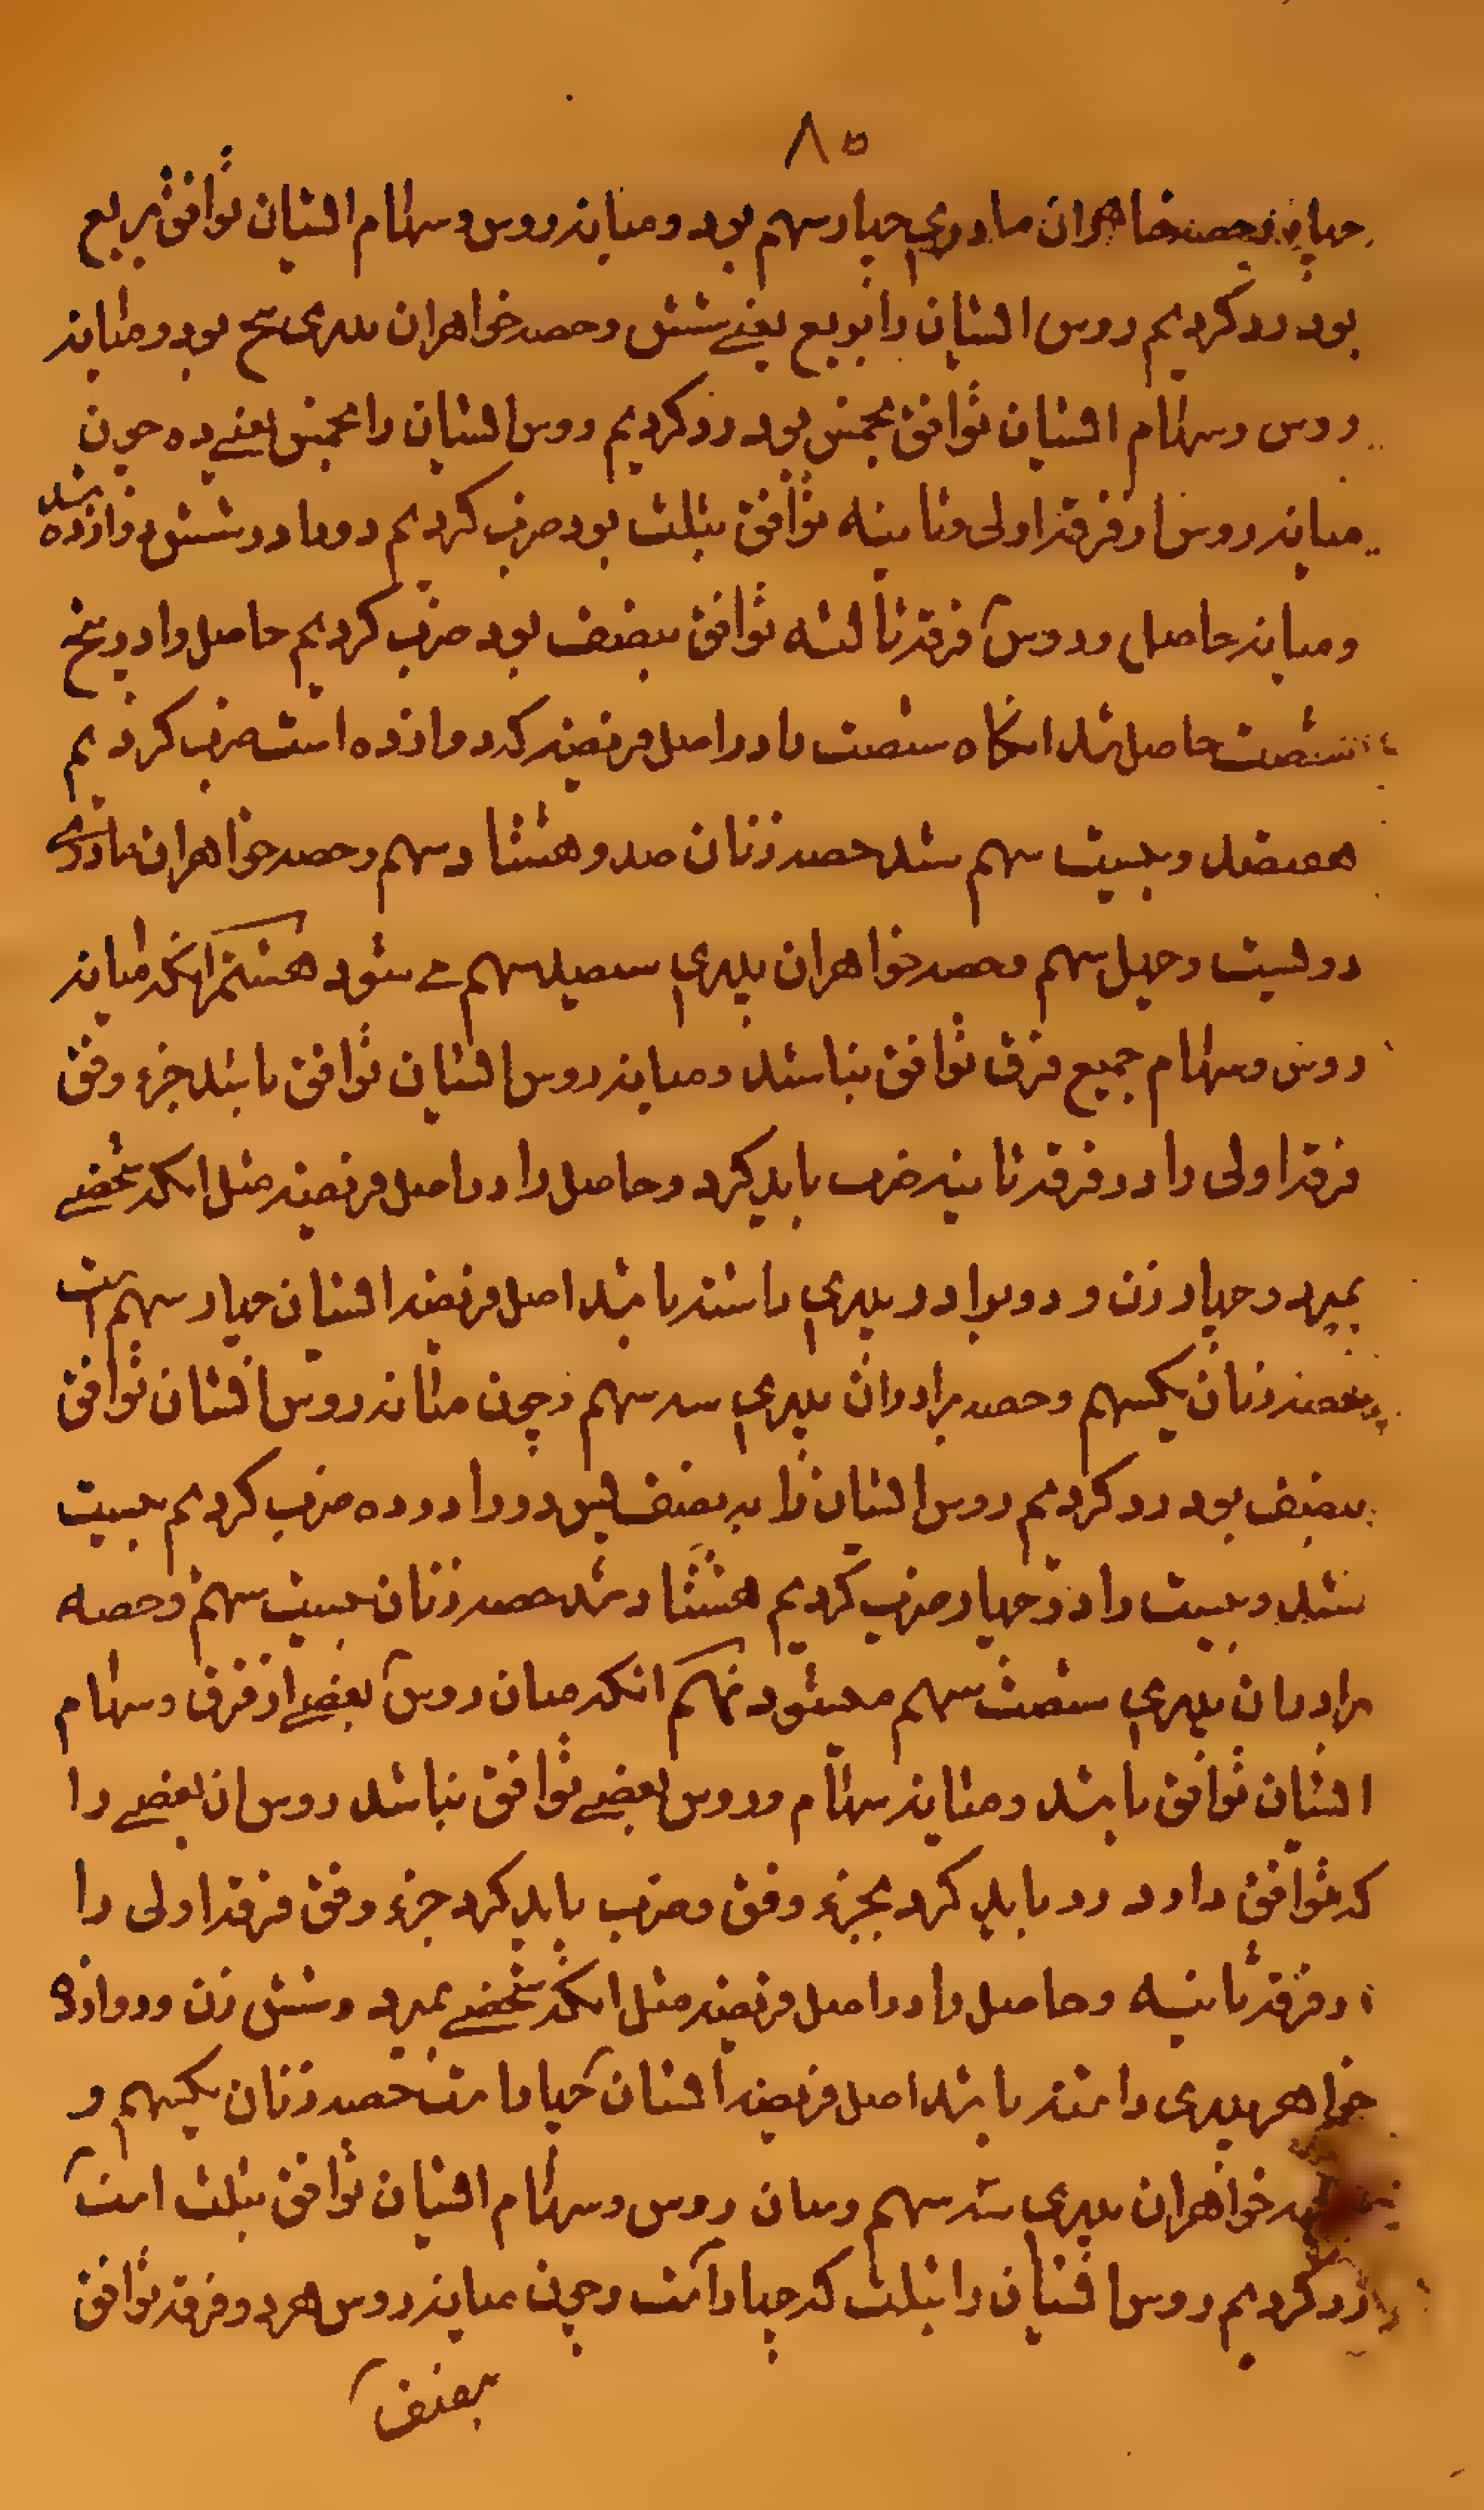 ۸۵
چهارم حصه خاهران مادری چهار سهم بود و میانه روس و سهام ایشان توافق بربع
بود رد کردیم روس ایشان را بربع یعنی شش و حصه خواهران پدری پنج بود و میانه
روس و سهام ایشان توافق بخمس بود رد کردیم روس ایشان را بخمس یعنی ده چون
میانه روس در فرقه اولی و ثانیه توافق بثلث بود ضرب کردیم دو را در شش دوازده شد
و میانه حاصل و روس فرقه ثالثه توافق بنصف بود ضرب کردیم حاصل را در پنج
شصت حاصل شد انگاه شصت را در اصل فریضه که دوازده است ضرب کردیم
هفتصد و بیست سهم شد حصه زنان صد و هشتاد سهم و حصه خواهران مادری
دویست و چهل سهم و حصه خواهران پدری سیصد سهم می شود هشتم انکه میانه
روس و سهام جمیع فرق توافق نباشد و میانه روس ایشان توافق باشد جزء وفق
فرقه اولی را در فرقه ثانیه ضرب باید کرد و حاصل را در اصل فریضه مثل انکه شخصی
بمیرد و چهار زن و ده برادر پدری داشته باشد اصل فریضه ایشان چهار سهم است
حصه زنان یکسهم و حصه برادران پدری سه سهم و چون میانه روس ایشان توافق
بنصف بود رد کردیم روس ایشان را به نصف پس دو را در ده ضرب کردیم بیست
شد و بیست را در چهار ضرب کردیم هشتاد شد حصه زنان بیست سهم و حصه
برادران پدری شصت سهم میشود نهم انکه میان روس بعضی از فرق و سهام
ایشان توافق باشد و میانه سهام و روس بعضی توافق نباشد روس ان بعضی را
که توافق دارد رد باید کرد بجزء وفق و ضرب باید کرد جزء وفق فرقه اولی را
در فرقه ثانیه و حاصل را در اصل فریضه مثل انکه شخصی بمیرد و شش زن و دوازده
خواهر پدری داشته باشد اصل فریضه ایشان چهار است حصه زنان یکسهم و
حصه خواهران پدری سه سهم و میان روس و سهام ایشان توافق بثلث است
رد کردیم روس ایشان را بثلث که چهار است و چون میانه روس هر دو فرقه توافق
بنصف